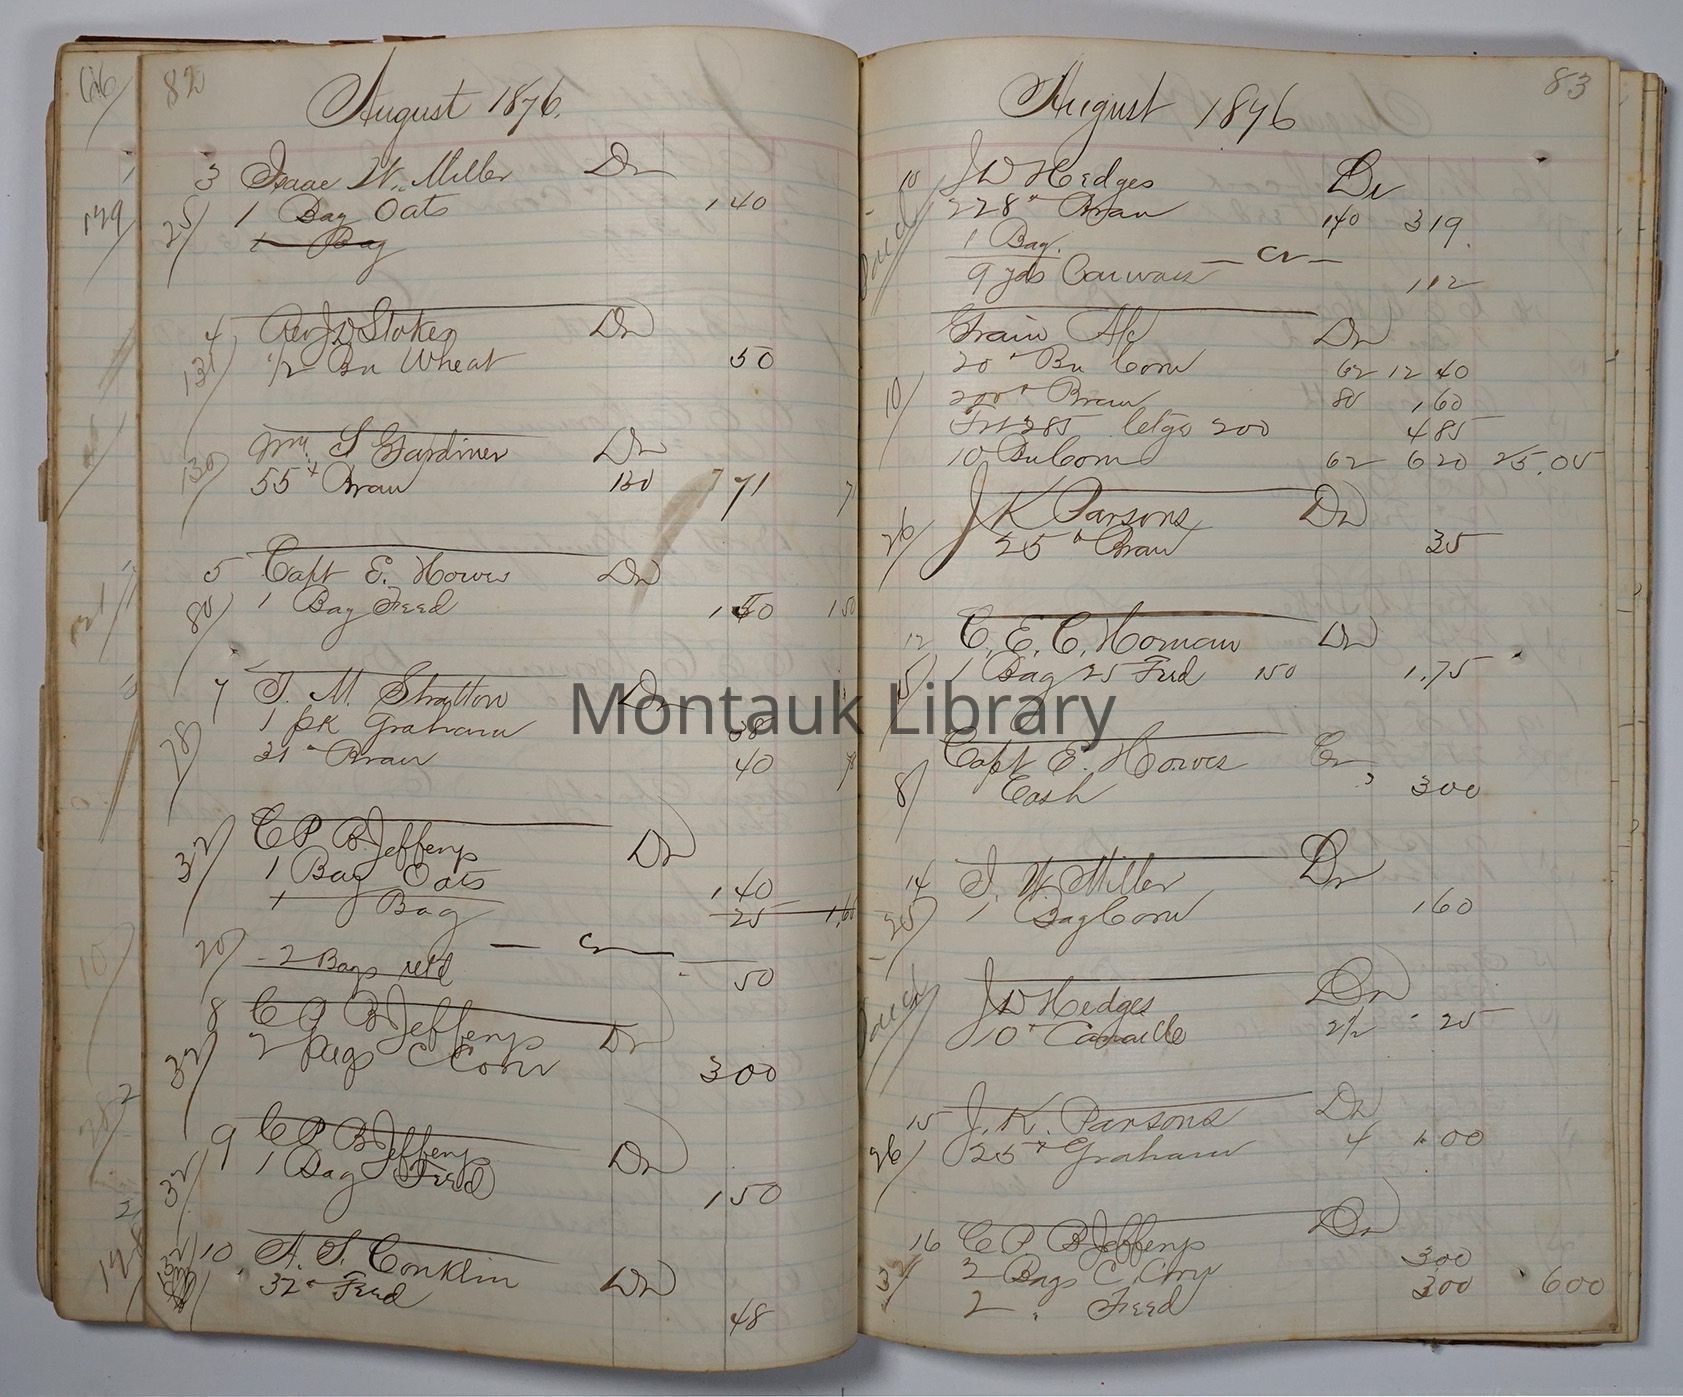 82
August 1876.
3 Isaac W. Miller Dr
25/ 1 Bag Oats 1 40
1 Bag
4 Rev J D Stokes Dr
131/ 1/2 Bu Wheat 50
S Gardiner Dr
130/ 55 # Bran 130 71
5 Capt E. Howes Dr
80/ 1 Bag Feed 1 50 150
7 T. M. Stratton Dr
78/ 1 pk Graham 38
31 " Bran 40
32/ C P B Jeffery Dr
1 Bag Oats 1 40
1 Bag 25 1,65
Cr
20/ 2 Bags retd 50
8 C P B Jeffery Dr
32/ 2 C Corn 300
9 C P B Jeffery Dr
32/ 1 Bag Feed 1 50
10 A. S. Conklin Dr
32 " Feed 48
83
August 1876
10 J D Hedges Dr
228 " Bran 140 319
1 Bag
9 yds Canvass — Cr — 112
Grain A/c Dr
20 " Bu Corn 62 12 40
10/ 200 # Bran 80 1 60
Frt 285 200 485
10 Bu Corn 62 6 20 25.05
J K Parsons Dr
26/ 25 " Bran 35
12 C. E. C. Homan Dr
5/ 1 Bag 25 Feed 150 1.75
Capt E. Howes Cr
8/ Cash 300
14 I. W. Miller Dr
25/ 1 Bag Corn 160
J D Hedges Dr
10 " Canaille 2 1/2 25
15 J. K. Parsons Dr
26/ 25 # Graham 4 1 00
16 C P B Jeffery Dr
32/ 2 Bags C Corn 300
2 " Feed 300 600
Montauk Library